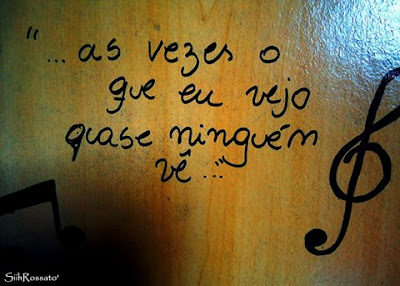 "... as vezes o
que eu vejo
quase ninguém
vê ..."
SiihRossato'